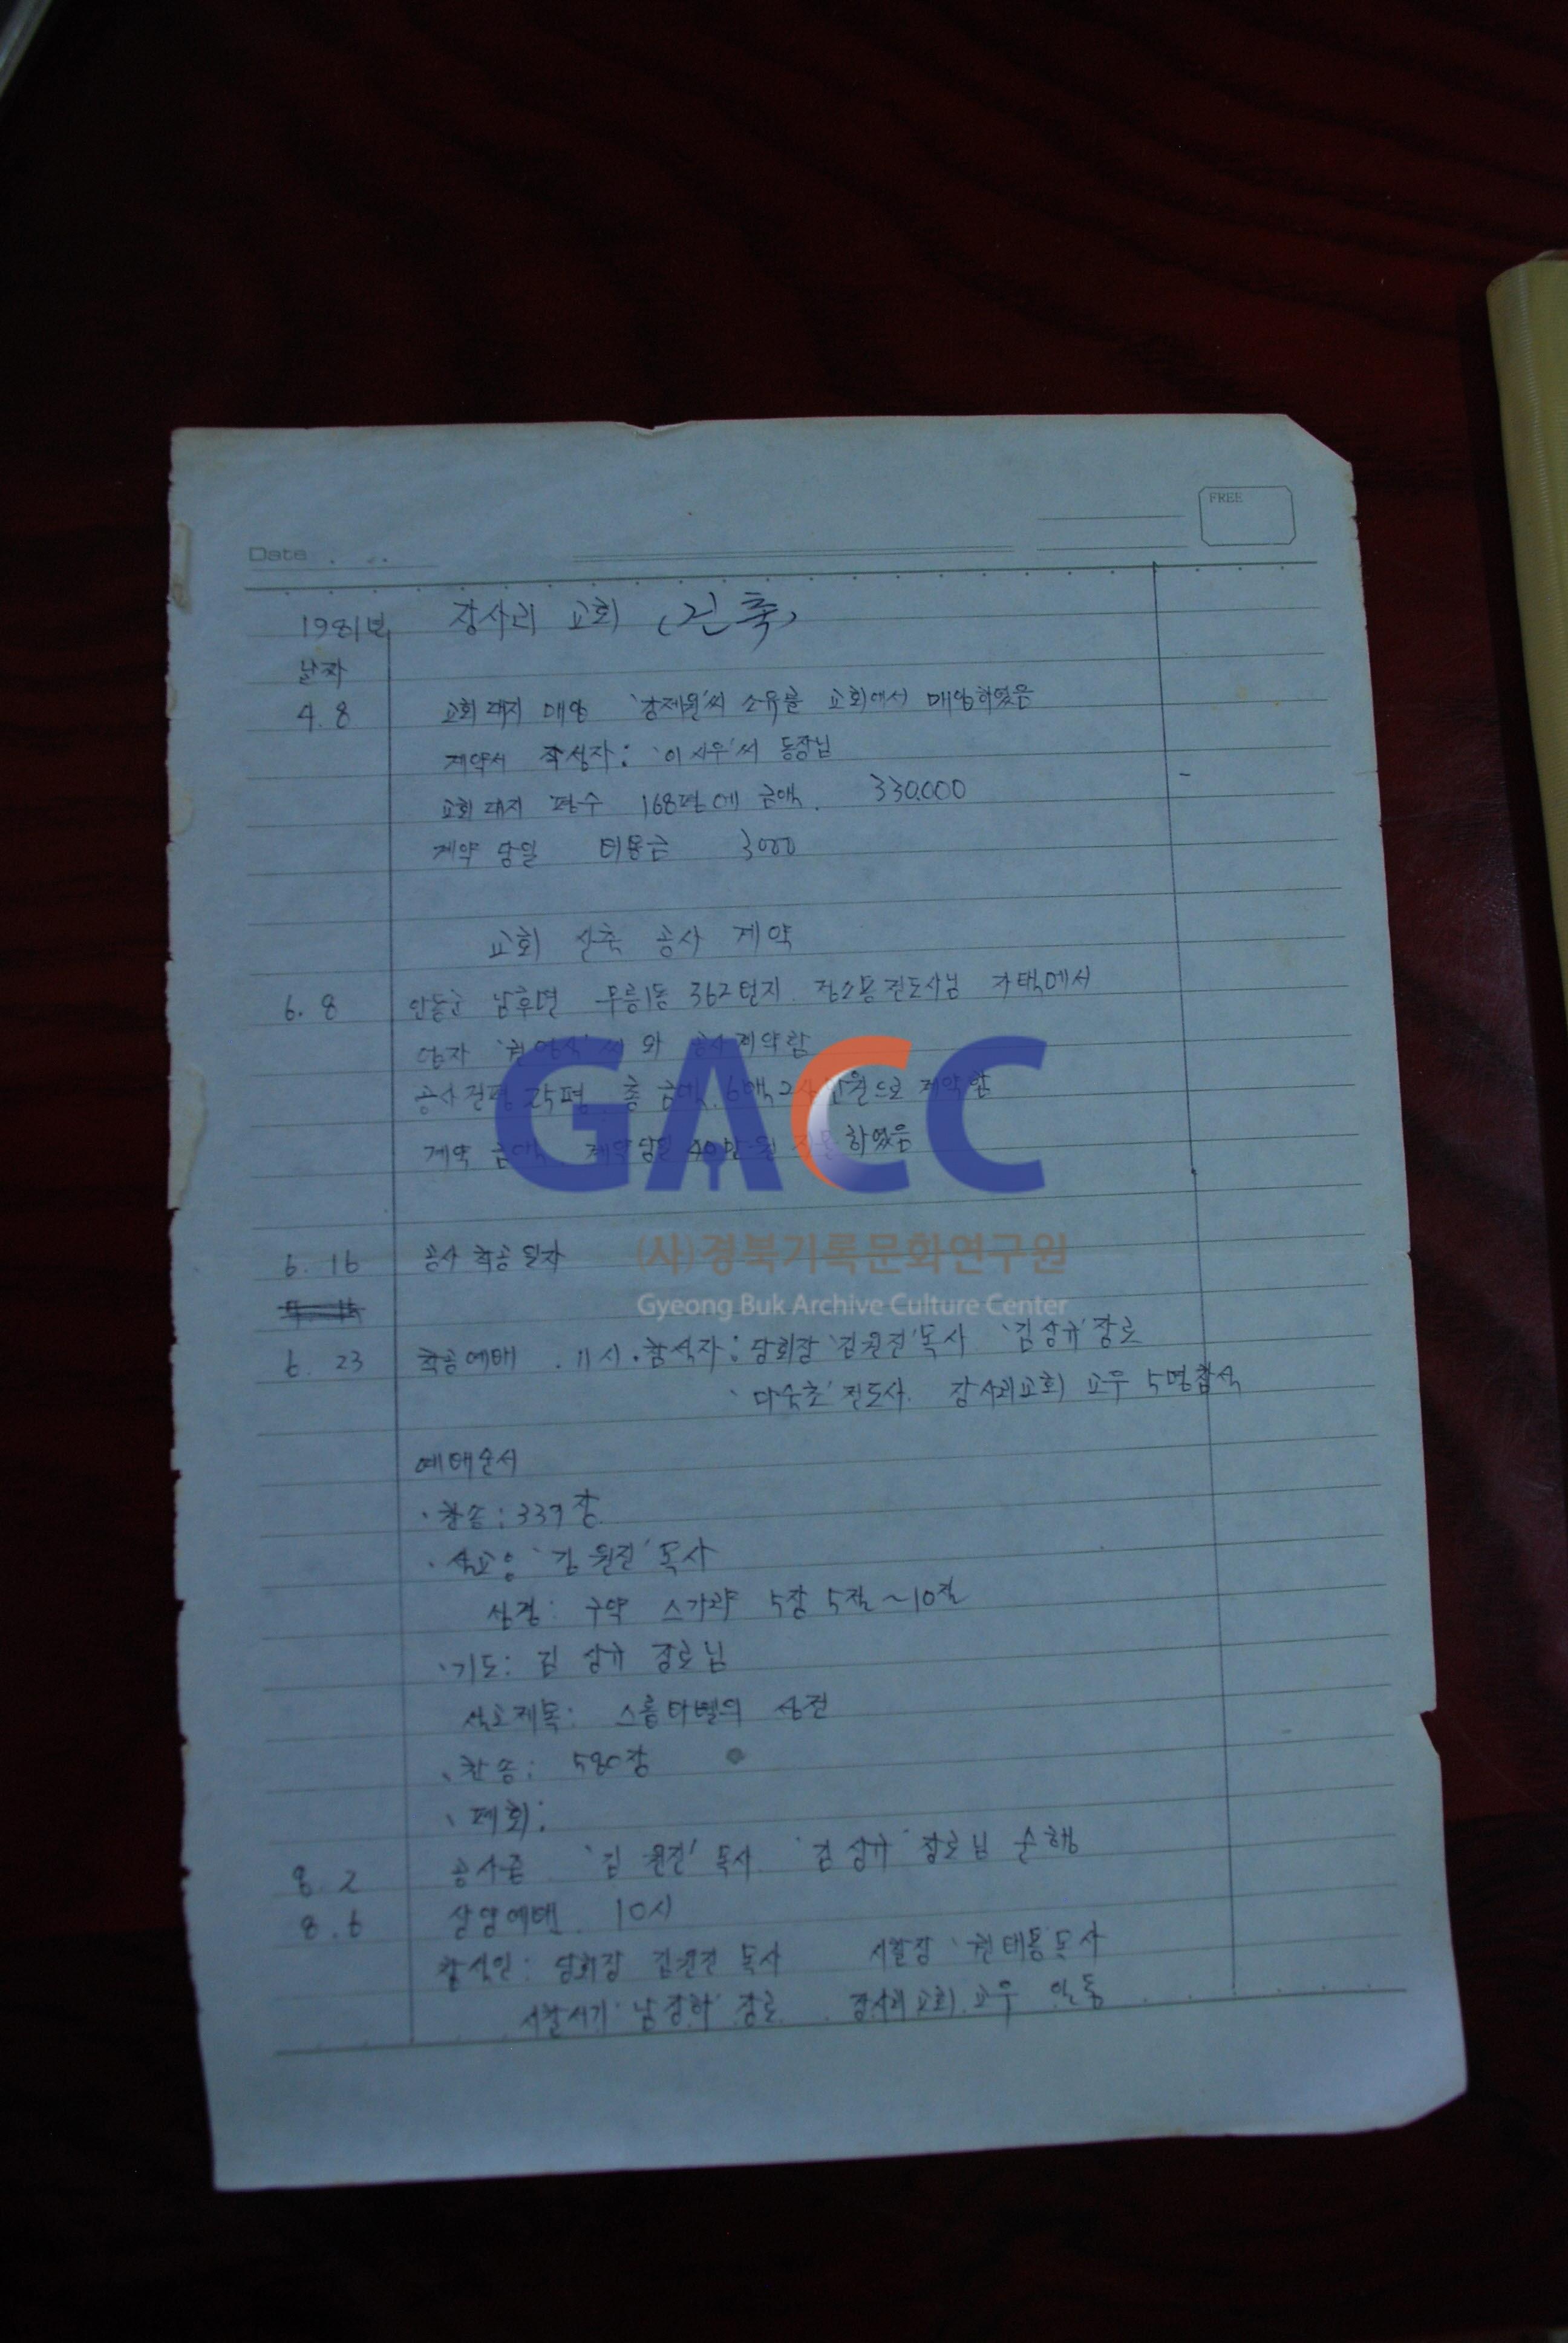 FREE
Date
1981년 장사리 교회 (건축)
날짜
4.8 교회 대지 매입 '강제원'씨 소유를 교회에서 매입하였음
계약서 작성자: '이사우'씨 동장님
교회 대지 평수 168평에 금액. 330.000
계약 당일 비용금 3000
교회 신축 공사 계약
6. 8 안동군 남후면 무릉1동 362번지. 전도사님 자택에서
업자 씨와 공사계약함
공사건평 25평. 총 금액. 6백2십만원으로 계약함
계약 금액. 계약당일 40만원 하였음
GACC
6. 16 공사 착공 일자
(사)경북기록문화연구원
Gyeong Buk Archive Culture Center
6. 23 착공예배. 11시. 참석자: 당회장 '김원진'목사 '김상규'장로
전도사. 장사리교회 교우 5명참석
예배순서
·찬송: 337장.
·설교: '김원진'목사
성경: 구약 스가랴 5장 5절~10절
·기도: 김상규 장로님
설교제목: 스룹바벨의 성전
·찬송: 580장
·폐회:
8. 2 공사중 '김원진'목사 '김상규'장로님 순행
8. 6 상량예배. 10시
참석인: 당회장 김원진 목사 시찰장 '권태동'목사
시찰서기 장로. 장사리교회. 교우 일동